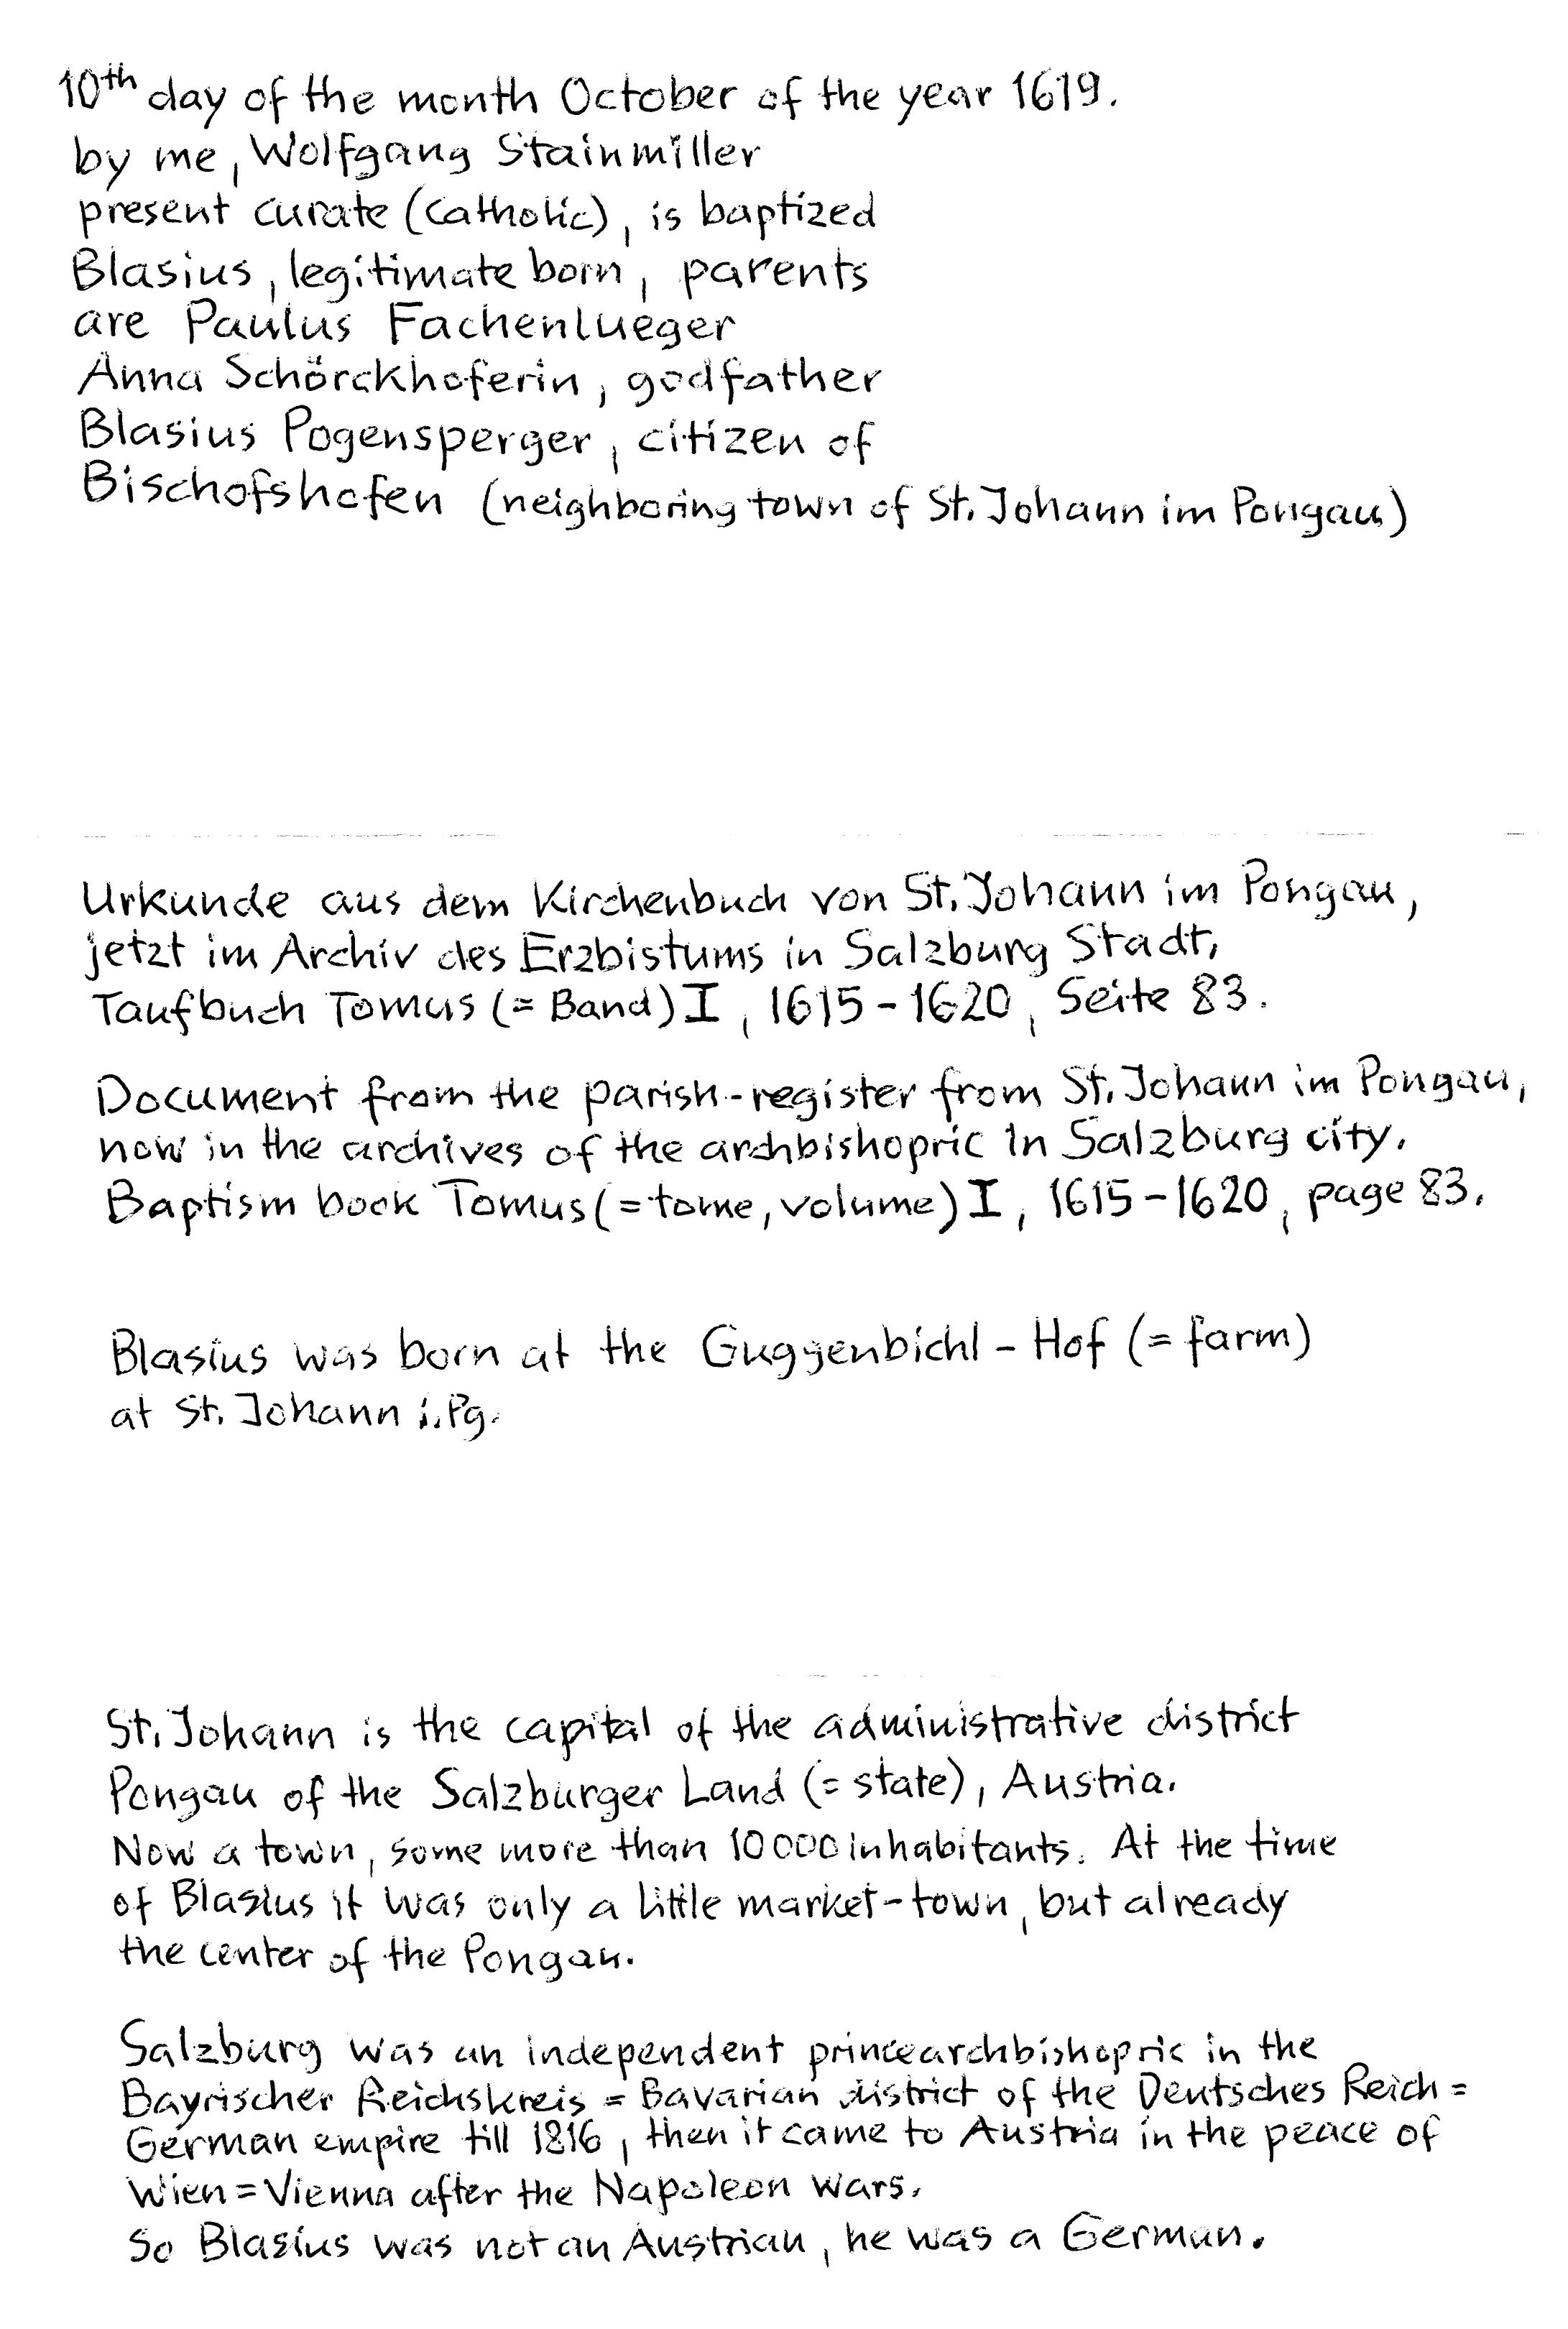 10th day of the month October of the year 1619.
by me, Wolfgang Stainmiller
present curate (Catholic), is baptized
Blasius, legitimate born, parents
are Paulus Fachenlueger
Anna Schörckhoferin, godfather
Blasius Pogensperger, citizen of
Bischofshofen (neighboring town of St. Johann im Pongau)
Urkunde aus dem Kirchenbuch von St. Johann im Pongau,
jetzt im Archiv des Erzbistums in Salzburg Stadt,
Taufbuch Tomus (= Band) I, 1615-1620, Seite 83.
Document from the parish-register from St. Johann im Pongau,
now in the archives of the archbishopric in Salzburg city.
Baptism book Tomus (= tome, volume) I, 1615-1620, page 83.
Blasius was born at the Guggenbichl - Hof (= farm)
at St. Johann i. Pg.
St. Johann is the capital of the administrative district
Pongau of the Salzburger Land (= state), Austria.
Now a town, some more than 10000 inhabitants. At the time
of Blasius it was only a little market-town, but already
the center of the Pongau.
Salzburg was an independent princearchbishopric in the
Bayrischer Reichskreis = Bavarian district of the Deutsches Reich =
German empire till 1816, then it came to Austria in the peace of
Wien = Vienna after the Napoleon wars.
So Blasius was not an Austrian, he was a German.